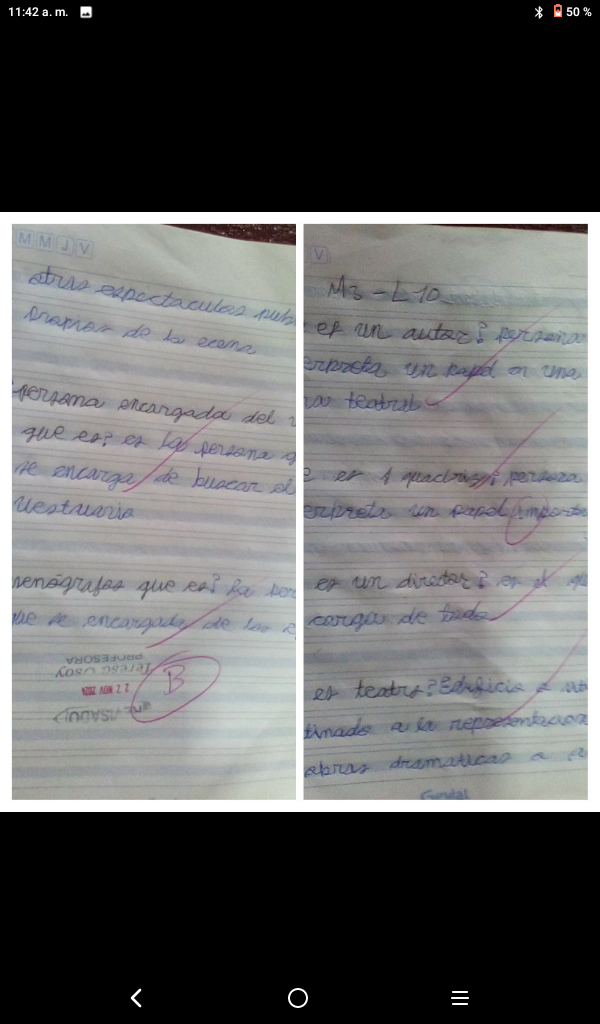 11:42 a. m.
50 %
M M J V
otras espectaculos pub
propios de la ecena
persona encargada del
que es? es la persona q
se encarga de buscar el
Vestuario
que es? la per
que se encargada de los
PROFESORA
22 NOV 2024
B
V
M3-L10
es un autor? persona
erpreta un papel en una
ra teatral
es 1 quadris? persona
erpreta un papel importa
es un diretor? es el q
carga de todo
es teatro? Edificio o
tinado a la representacion
obras dramaticas o a